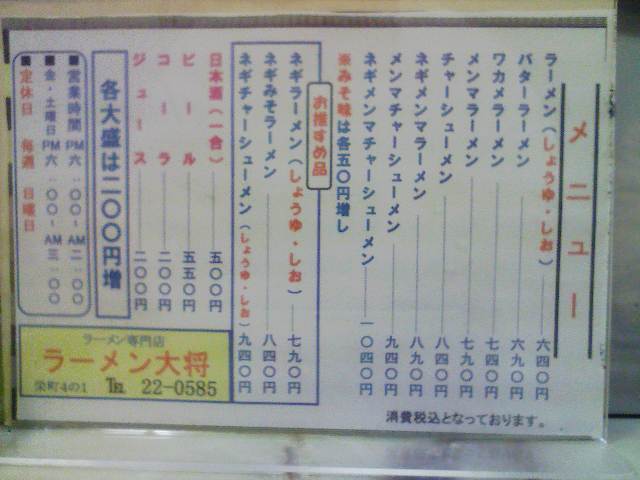 メニュー
ラーメン(しょうゆ・しお) 六四〇円
バターラーメン 六九〇円
ワカメラーメン 七四〇円
メンマラーメン 七九〇円
チャーシューメン 八四〇円
ネギメンマラーメン 八九〇円
メンマチャーシューメン 九四〇円
ネギメンマチャーシューメン 一〇四〇円
※みそ味は各五〇円増し
お推すめ品
ネギラーメン(しょうゆ・しお) 七九〇円
ネギみそラーメン 八四〇円
ネギチャーシューメン(しょうゆ・しお) 九四〇円
日本酒(一合) 五〇〇円
ビール 五五〇円
コーラ 二〇〇円
ジュース 二〇〇円
各大盛は二〇〇円増
■営業時間 PM六:〇〇~AM二:〇〇
■金・土曜日PM六:〇〇~AM三:〇〇
■定休日 毎週 日曜日
ラーメン専門店
ラーメン大将
栄町4の1 TEL 22-0585
消費税込となっております。